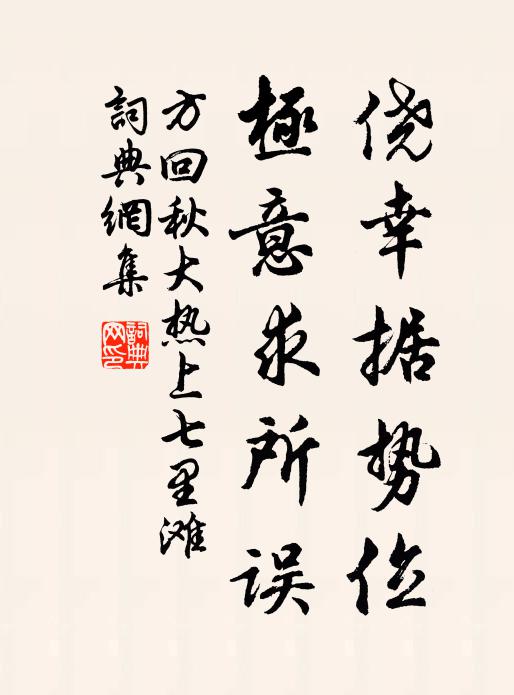 侥幸据势位
極意求所误
方回秋大热上七里滩
詞典網集
詞典網印